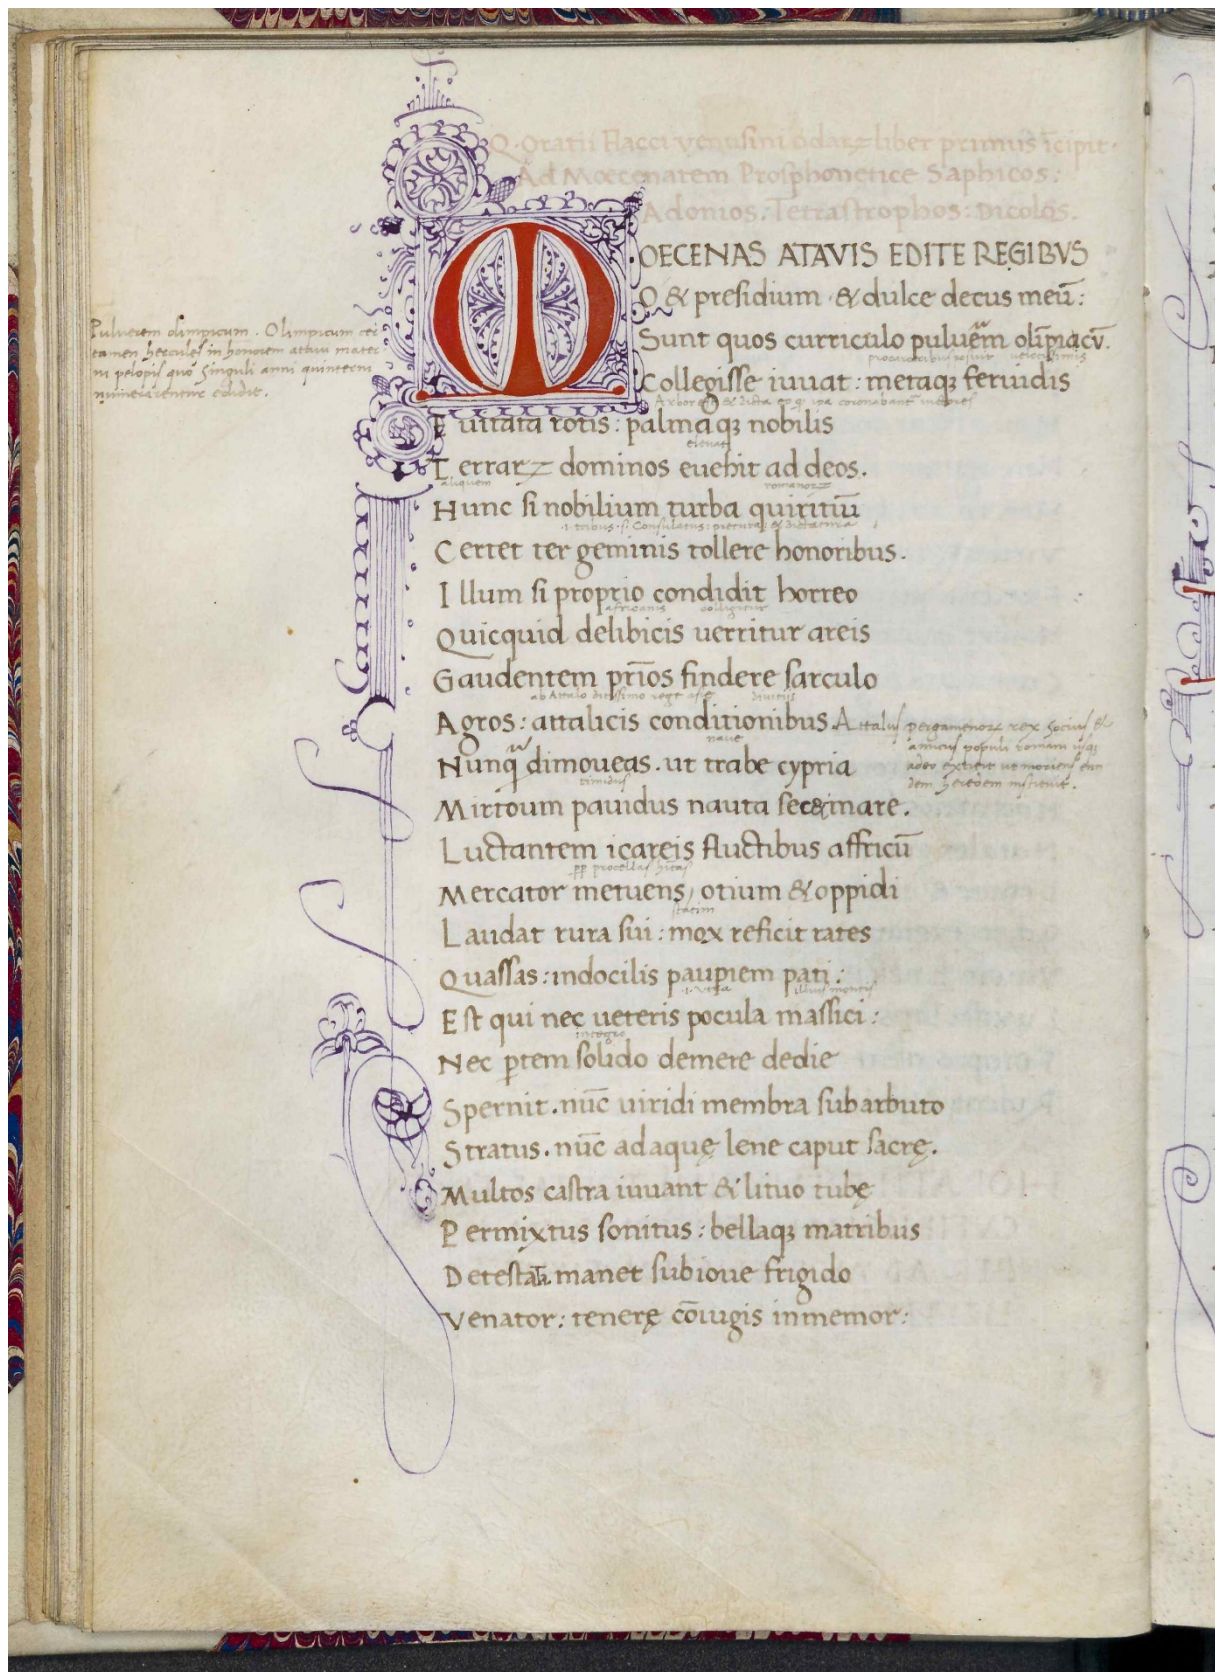 Q. Oratii Flacci venusini odarꝝ liber primus īcipit.
Ad Mœcenatem Prosphonetice Saphicos:
Adonios: Tetrastrophos: Dicolos.
MOECENAS ATAVIS EDITE REGIBVS
O & presidium & dulce decus meū:
Sunt quos curriculo puluerem olīpiacū.
Collegisse iuuat: metaqꝫ feruidis
Euitata rotis: palmaqꝫ nobilis
Terrarꝝ dominos euehit ad deos.
aliquem romanorꝝ
Hunc si nobilium turba quiritiū
Certet ter geminis tollere honoribus.
Illum si proprio condidit horreo
africanis colligitur
Quicquid delibicis uerritur areis
Gaudentem prios findere sarculo
ab Attalo ditissimo rege diuitijs
Agros: attalicis conditionibus
naue
Nunq̄ dimoueas. ut trabe cypria
timidus
Mirtoum pauidus nauta sec& mare.
Luctantem icareis fluctibus affricū
Mercator metuens, otium & oppidi
statim
Laudat rura sui: mox reficit rates
Quassas: indocilis paupiem pati:
Est qui nec ueteris pocula massici:
integro
Nec ꝑtem solido demere dedie
Spernit. nūc uiridi membra subarbuto
Stratus. nūc adaquę lene caput sacrę.
Multos castra iuuant & lituo tubę
Permixtus sonitus: bellaqꝫ matribus
Detestata. manet subioue frigido
Venator: tenerę cōiugis inmemor:
Puluerem olimpicum. Olimpicum cer
tamen hercules in honorem attaui mater
ni pelopis quo singuli anni quinterni
numerarentur edidit.
Attalus pergamenorꝝ rex socius &
amicus populi romani usqꝫ
adeo extitit ut moriens eun
dem heredem instituit.